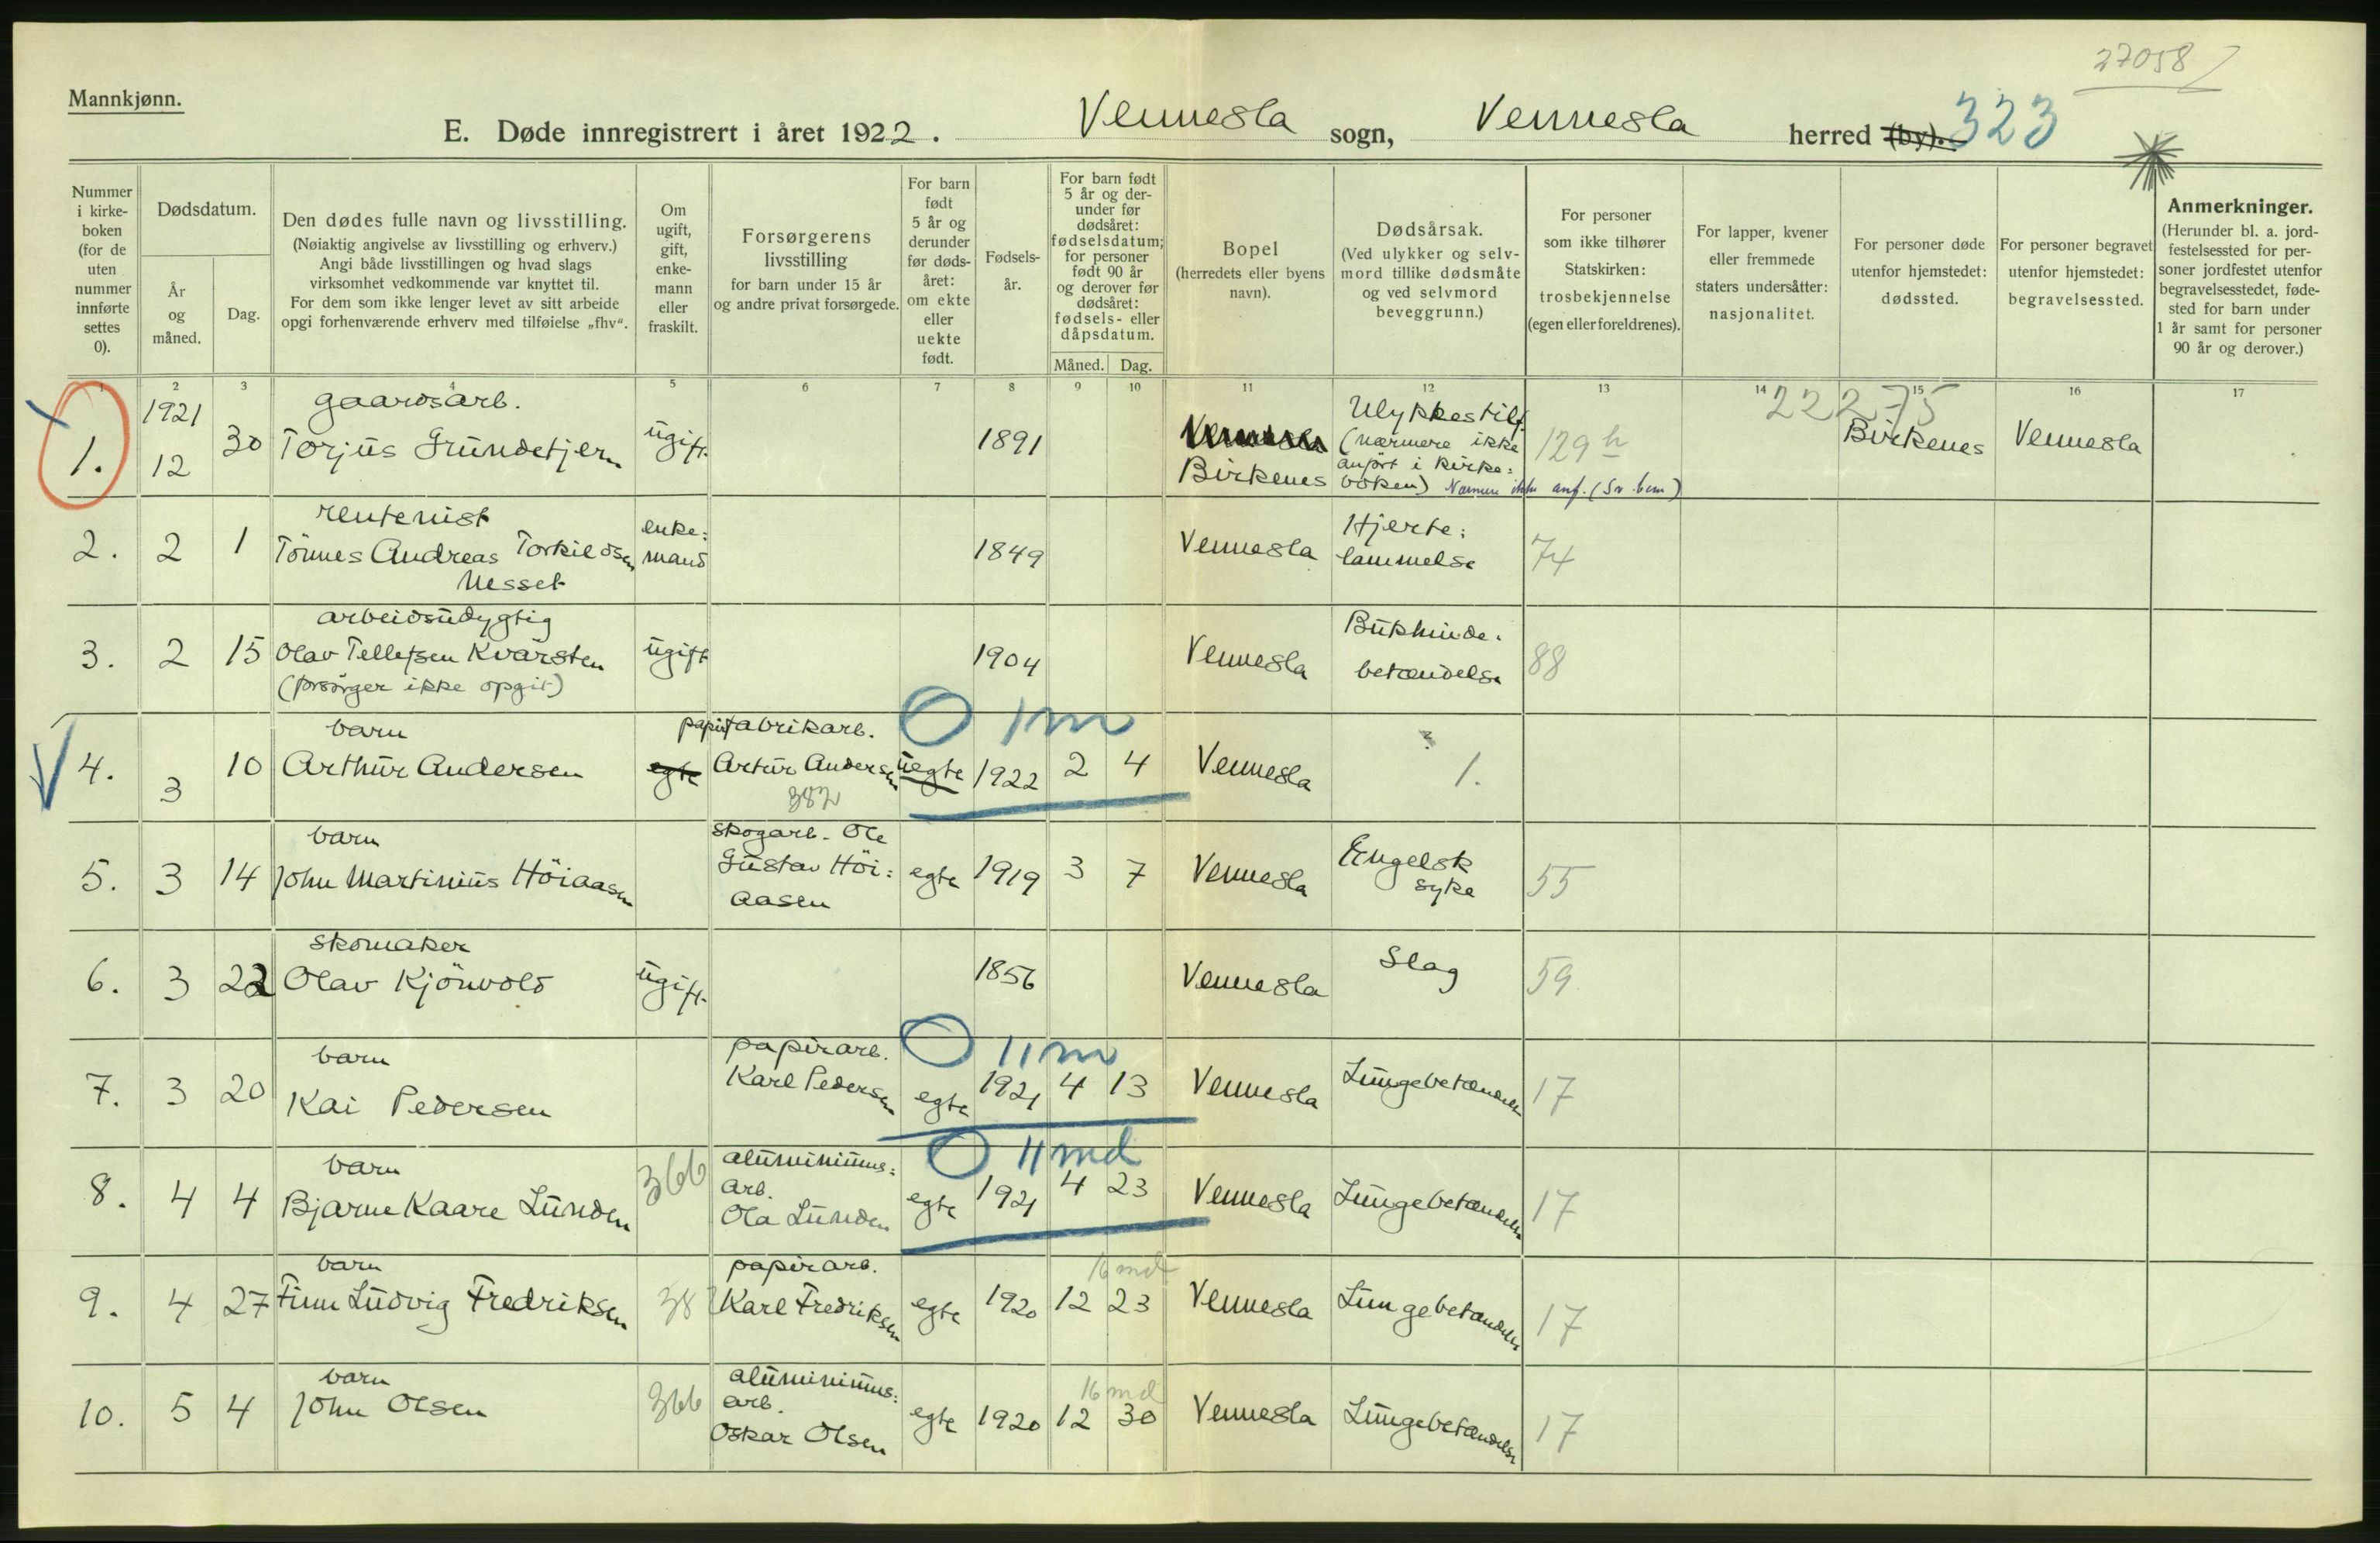 27058
Mannkjønn.
E. Døde innregistrert i året 1922. Vennesla sogn, Vennesla herred (by). 323
Nummer i kirkeboken (for de uten nummer innførte settes 0).
Dødsdatum.
År og måned.
Dag.
Den dødes fulle navn og livsstilling.
(Nøiaktig angivelse av livsstilling og erhverv.)
Angi både livsstillingen og hvad slags
virksomhet vedkommende var knyttet til.
For dem som ikke lenger levet av sitt arbeide
opgi forhenværende erhverv med tilføielse „fhv“.
Om ugift, gift, enkemann eller fraskilt.
Forsørgerens livsstilling
for barn under 15 år
og andre privat forsørgede.
For barn født 5 år og derunder før dødsåret: om ekte eller uekte født.
Fødselsår.
For barn født 5 år og derunder før dødsåret: fødselsdatum; for personer født 90 år og derover før dødsåret: fødsels- eller dåpsdatum.
Måned. Dag.
Bopel
(herredets eller byens navn).
Dødsårsak.
(Ved ulykker og selvmord tillike dødsmåte og ved selvmord beveggrunn.)
For personer som ikke tilhører Statskirken: trosbekjennelse (egen eller foreldrenes).
For lapper, kvener eller fremmede staters undersåtter: nasjonalitet.
For personer døde utenfor hjemstedet: dødssted.
For personer begravet utenfor hjemstedet: begravelsessted.
Anmerkninger.
(Herunder bl. a. jordfestelsessted for personer jordfestet utenfor begravelsesstedet, fødested for barn under 1 år samt for personer 90 år og derover.)
1 2 3 4 5 6 7 8 9 10 11 12 13 14 15 16 17
22275
1. 1921 12 30 gaardsarb. Torjus Grundetjern ugift 1891 Vennesla Birkenes Ulykkestilf. (nærmere ikke anført i kirkeboken) Nærmere ikke anf. (Sv. bem) 129 h Birkenes Vennesla
2. 2 1 rentenist Tönnes Andreas Torkildsen Nesset enke: mand 1849 Vennesla Hjerte: lammelse 74
3. 2 15 arbeidsudygtig Olav Tellefsen Kvarsten (forsörger ikke opgit) ugift 1904 Vennesla Bukhinde. betændelse 88
4. 3 10 barn Arthur Andersen egte papirfabrikarb. Artur Andersen 382 uegte 1922 2 4 0 1 m Vennesla ? 1.
5. 3 14 barn John Martinius Höiaasen skogarb. Ole Gustav Höi: aasen egte 1919 3 7 Vennesla Engelsk syke 55
6. 3 22 skomaker Olav Kjönvold ugift 1856 Vennesla Slag 59
7. 3 20 barn Kai Pedersen papirarb. Karl Pedersen egte 1921 4 13 0 11 m Vennesla Lungebetændelse 17
8. 4 4 barn Bjarne Kaare Lunden 366 aluminiums: arb. Ola Lunden egte 1921 4 23 0 11 md Vennesla Lungebetændelse 17
9. 4 27 barn Finn Ludvig Fredriksen 382 papirarb. Karl Fredriksen egte 1920 12 23 16 md Vennesla Lungebetændelse 17
10. 5 4 barn John Olsen 366 aluminiums: arb. Oskar Olsen egte 1920 12 30 16 md Vennesla Lungebetændelse 17